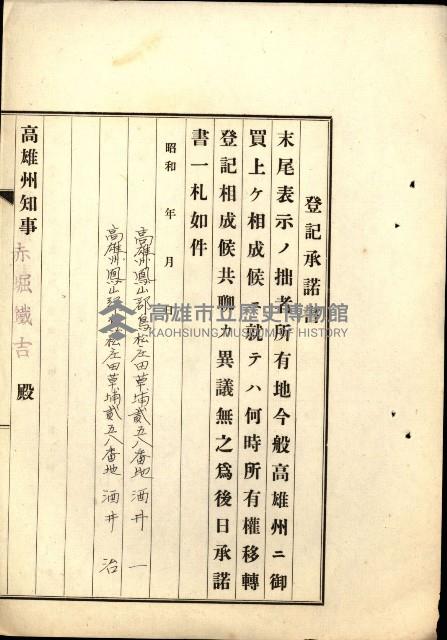 登記承諾書
末尾表示ノ拙者所有地今般高雄州ニ御
買上ケ相成候ニ就テハ何時所有權移轉
登記相成候共聊カ異議無之爲後日承諾
書一札如件
昭和 年 月 日
高雄州鳳山郡鳥松庄田草埔貳五八番地 酒井 一
高雄州鳳山郡鳥松庄田草埔貳五八番地 酒井 治
高雄州知事 赤堀鐵吉 殿
高雄市立歷史博物館
KAOHSIUNG MUSEUM OF HISTORY